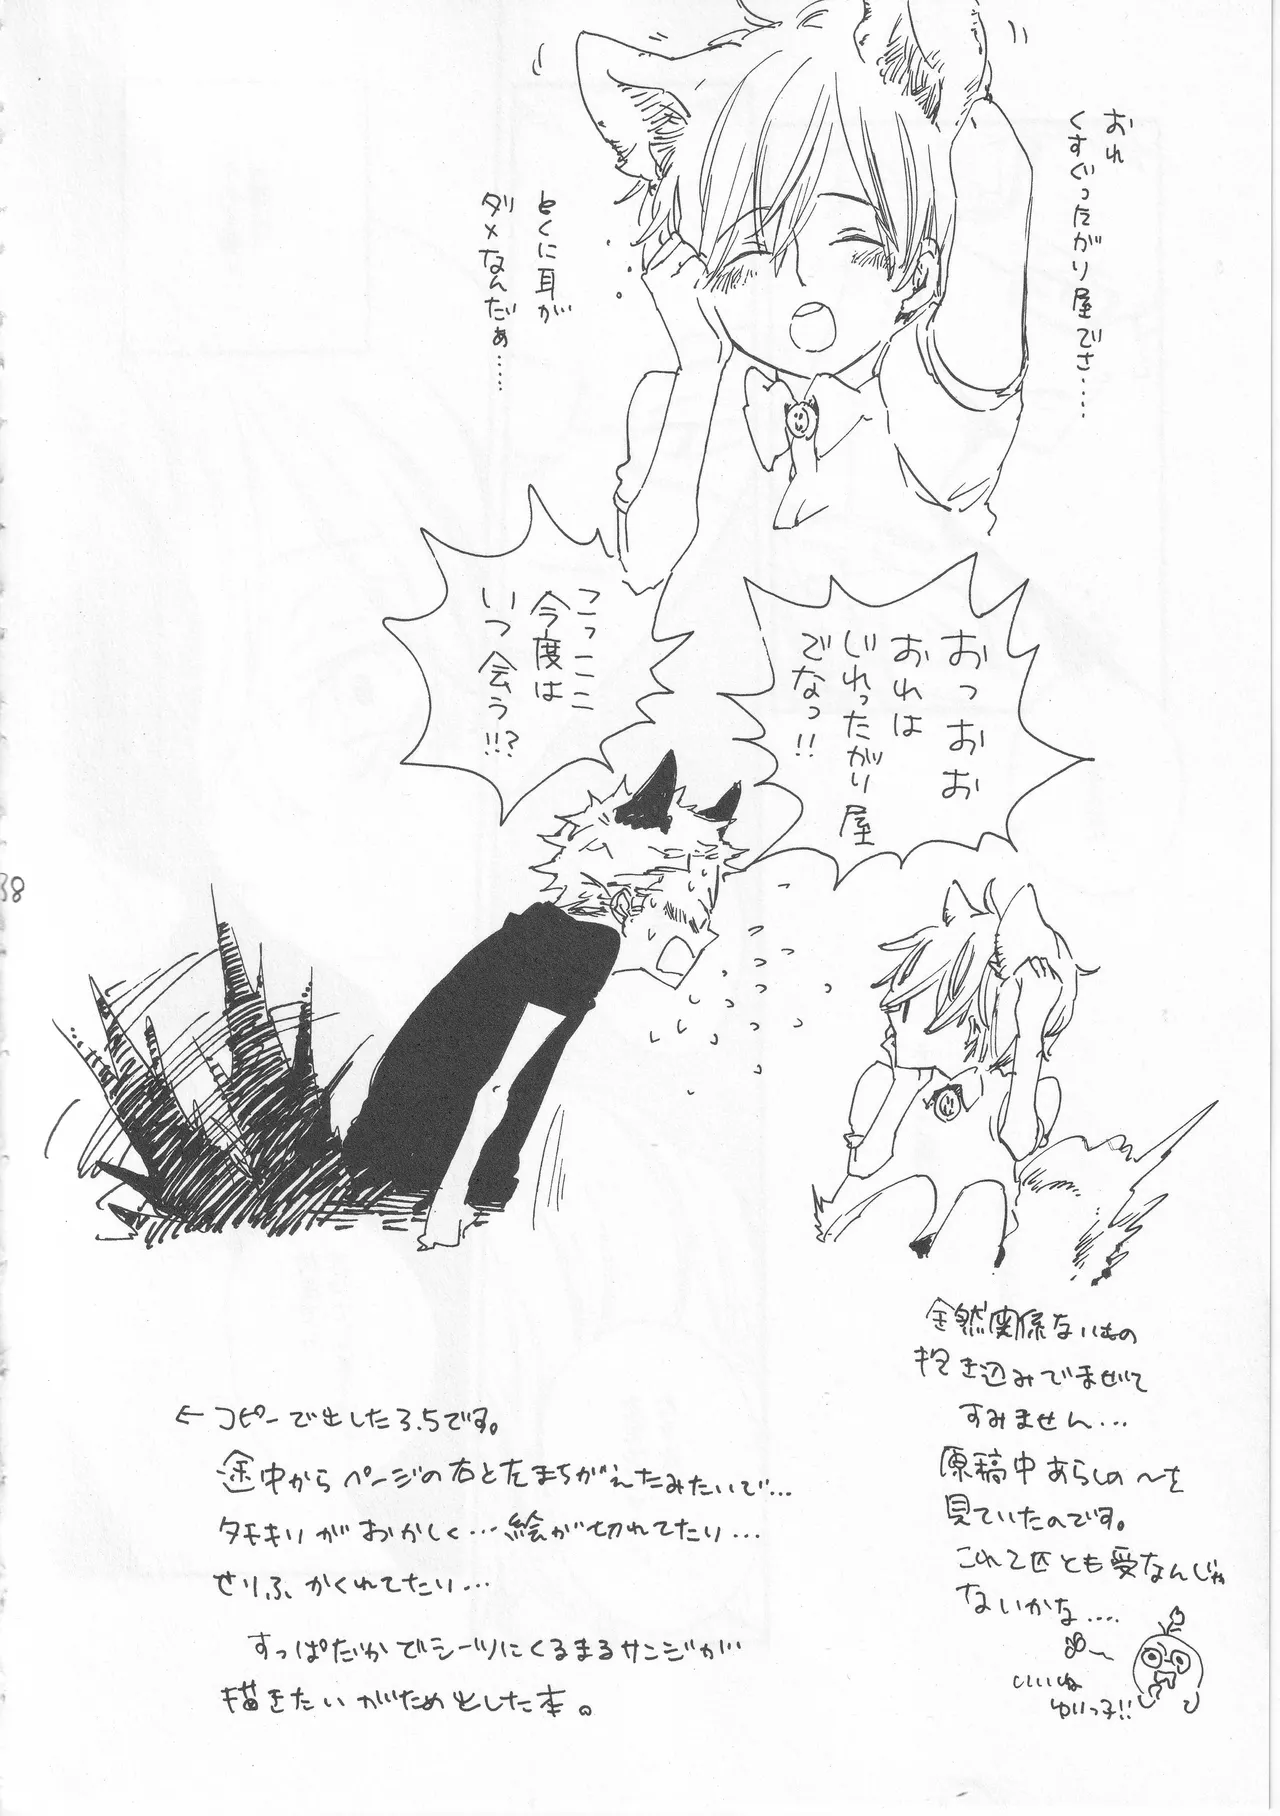 おれ
くすぐったがり屋でさ……
とくに耳が
ダメなんだぁ……
おっおお
おれは
じれったがり屋
でなっ!!
こっここ
今度は
いつ会う!!?
38
全然関係ないもの
抱き込みでませて
すみません…
原稿中あらしの〜を
見ていたのです。
これて匹とも受なんじゃ
ないかな….
いいね
ゆりっ子!!
← コピーで出した3.5です。
途中からページの右と左まちがえたみたいで…
タモキリがおかしく…絵が切れてたり…
せりふかくれてたり…
すっぱだかでシーツにくるまるサンジが
描きたいがため出した本。